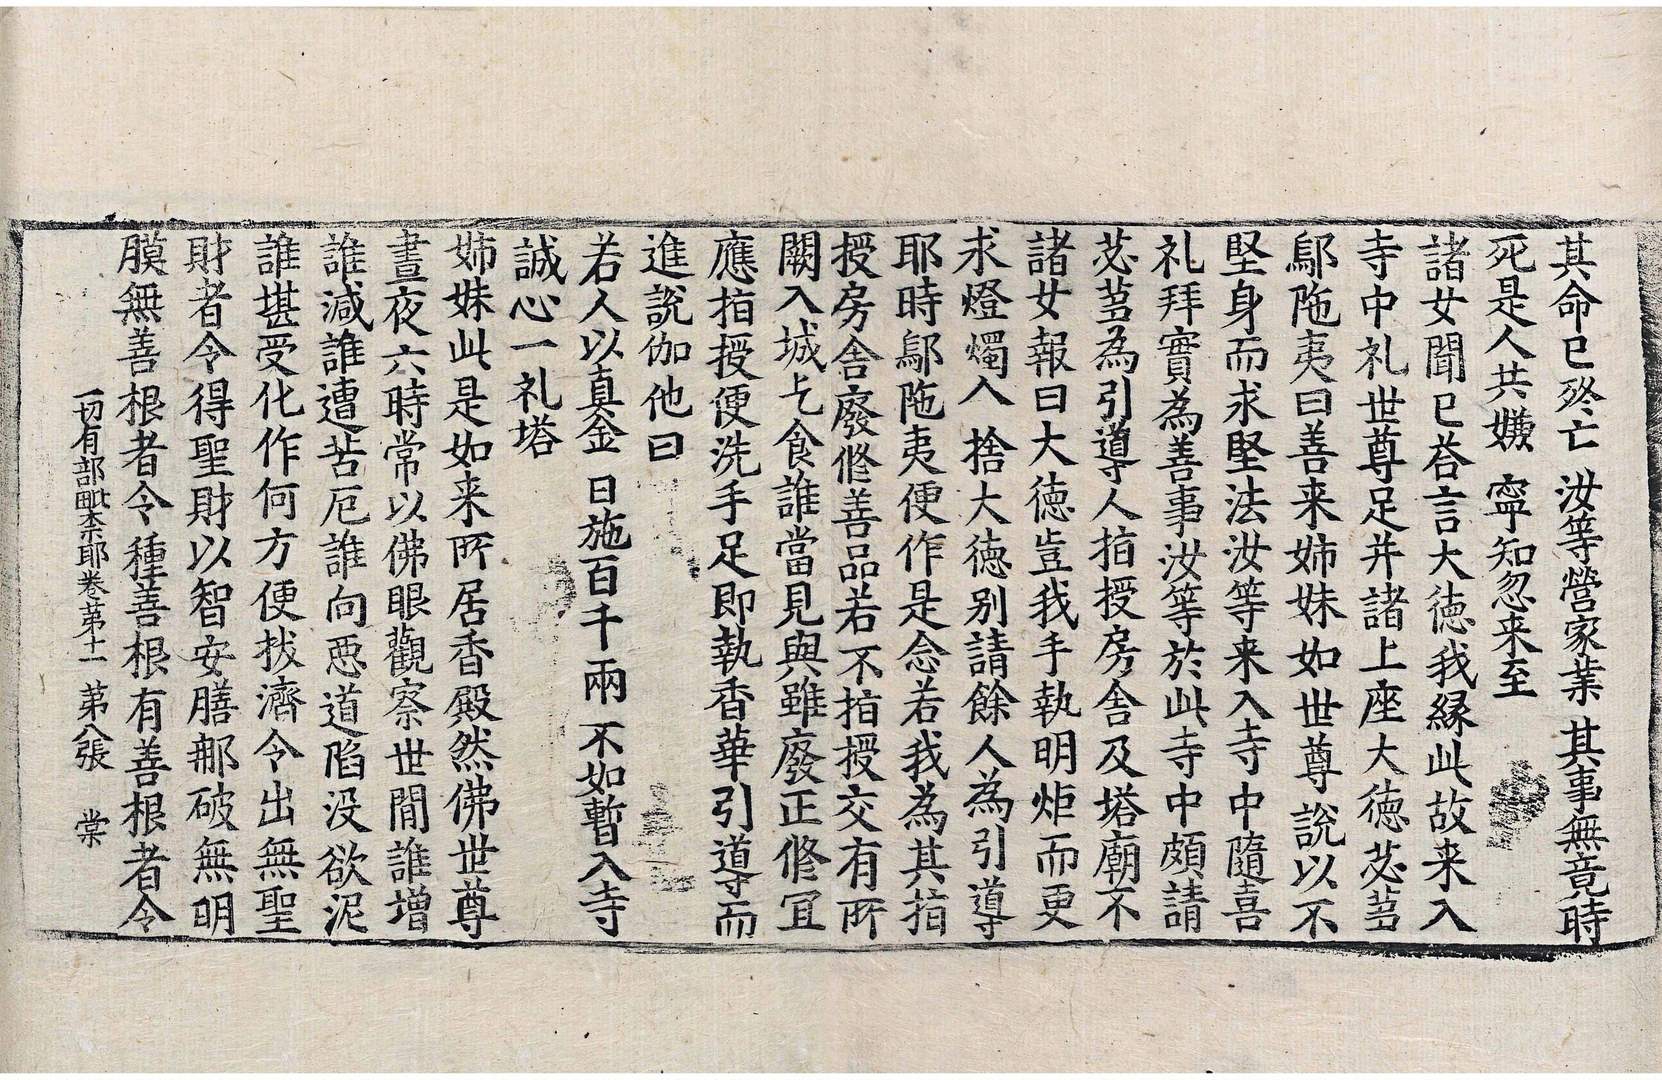 其命已終亡　汝等營家業　其事無竟時
死是人共嫌　寧知忽来至
諸女聞已荅言大德我緣此故来入
寺中礼世尊足并諸上座大德苾芻
鄔陁夷曰善来姊妹如世尊説以不
堅身而求堅法汝等来入寺中隨喜
礼拜實為善事汝等於此寺中頗請
苾芻為引導人指授房舍及塔廟不
諸女報曰大德豈我手執明炬而更
求燈燭入　捨大德别請餘人為引導
耶時鄔陁夷便作是念若我為其指
授房舍廢修善品若不指授交有所
闕入城乞食誰當見與雖廢正修冝
應指授便洗手足即執香華引導而
進説伽他曰
若人以真金　日施百千兩　不如暫入寺
誠心一礼塔
姊妹此是如来所居香殿然佛世尊
晝夜六時常以佛眼觀察世間誰增
誰減誰遭苦厄誰向惡道陷没欲泥
誰堪受化作何方便拔濟令出無聖
財者令得聖財以智安膳那破無明
膜無善根者令種善根有善根者令
一切有部毗柰耶卷苐十一　苐八張　棠